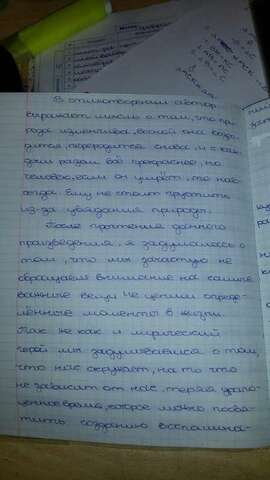 В стихотворении автор
выражает мысль о том, что при-
рода изменчива, весной она возро-
дится, переродится снова, и с каж-
дым разом всё прекраснее, но
человек, если он умрёт, то нав-
сегда. Ему не стоит грустить
из-за увядания природы.
После прочтения данного
произведения, я задумалась о
том, что мы зачастую не
обращаем внимание на самые
важные вещи не ценим опреде-
лённые моменты в жизни.
Так же как и лирический
герой мы задумываемся о том,
что нас окружает, на то что
не зависит от нас, теряя драго-
ценное время, которое можно посвя-
тить созданию воспомина-